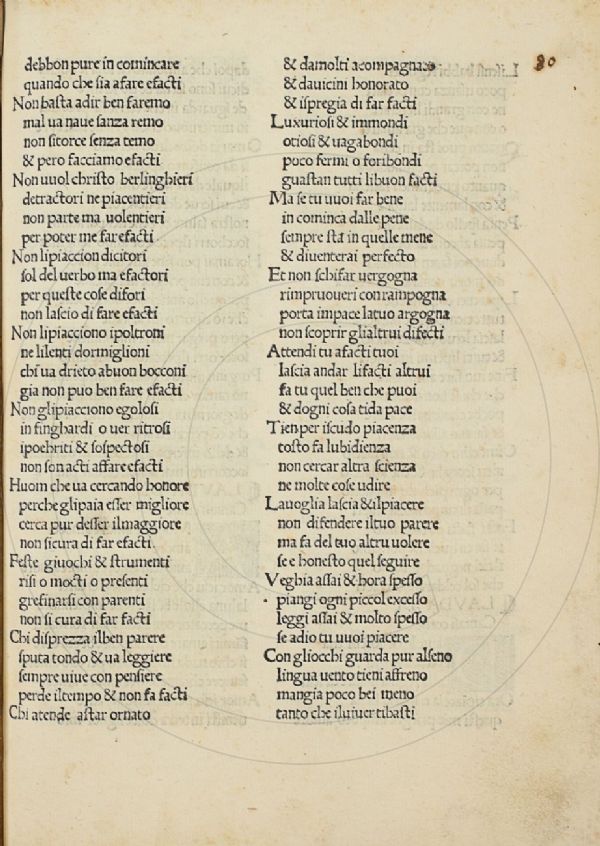 80
debbon pure in comincare
quando che sia afare efacti
Non basta adir ben faremo
mal ua naue sanza remo
non sitorce senza temo
& pero facciamo efacti
Non uuol christo berlinghieri
detractori ne piacentieri
non parte ma uolentieri
per poter me far efacti
Non lipiaccion dicitori
sol del uerbo ma efactori
per queste cose difori
non lascio di fare efacti
Non lipiacciono ipoltroni
ne lilenti dormiglioni
chi ua drieto abuon bocconi
gia non puo ben fare efacti
Non glipiacciono egolosi
in finghardi o uer ritrosi
ipochriti & sospectosi
non son acti affare efacti
Huom che ua cercando honore
perche glipaia esser migliore
cerca pur desser ilmaggiore
non sicura di far efacti
Feste giuochi & strumenti
risi o mocti o presenti
grefinarsi con parenti
non si cura di far facti
Chi disprezza ilben parere
sputa tondo & ua leggiere
sempre uiue con pensiere
perde iltempo & non fa facti
Chi atende astar ornato
& damolti acompagnato
& dauicini honorato
& ispregia di far facti
Luxuriosi & immondi
otiosi & uagabondi
poco fermi o foribondi
guastan tutti libuon facti
Ma se tu uuoi far bene
in cominca dalle pene
sempre sta in quelle mene
& diuenterai perfecto
Et non schifar uergogna
rimpruoueri con rampogna
porta impace latuo argogna
non scoprir glialtrui difecti
Attendi tu afacti tuoi
lascia andar lifacti altrui
fa tu quel ben che puoi
& dogni cosa tida pace
Tien per iscudo piacenza
tosto fa lubidienza
non cercar altra scienza
ne molte cose udire
Lauoglia lascia &ilpiacere
non difendere iltuo parere
ma fa del tuo altru uolere
se e honesto quel seguire
Veghia assai & hora spesso
piangi ogni piccol excesso
leggi assai & molto spesso
se adio tu uuoi piacere
Con gliocchi guarda pur alseno
lingua uento tieni affreno
mangia poco bei meno
tanto che iluiuer tibasti